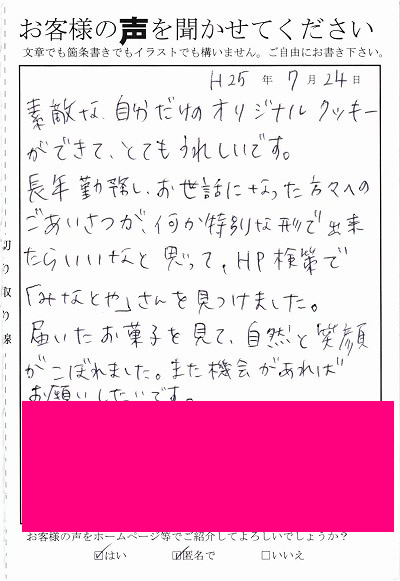 お客様の声を聞かせてください
文章でも箇条書きでもイラストでも構いません。ご自由にお書き下さい。
H25 年 7 月 24 日
素敵な、自分だけのオリジナルクッキー
ができて、とてもうれしいです。
長年勤務し、お世話になった方々への
ごあいさつが、何か特別な形で出来
たらいいなと思って、HP検策で
「みなとや」さんを見つけました。
届いたお菓子を見て、自然と笑顔
がこぼれました。また機会があれば
お願いしたいです。
切り取り線
お客様の声をホームページ等でご紹介してよろしいでしょうか？
☑はい ☑匿名で □いいえ